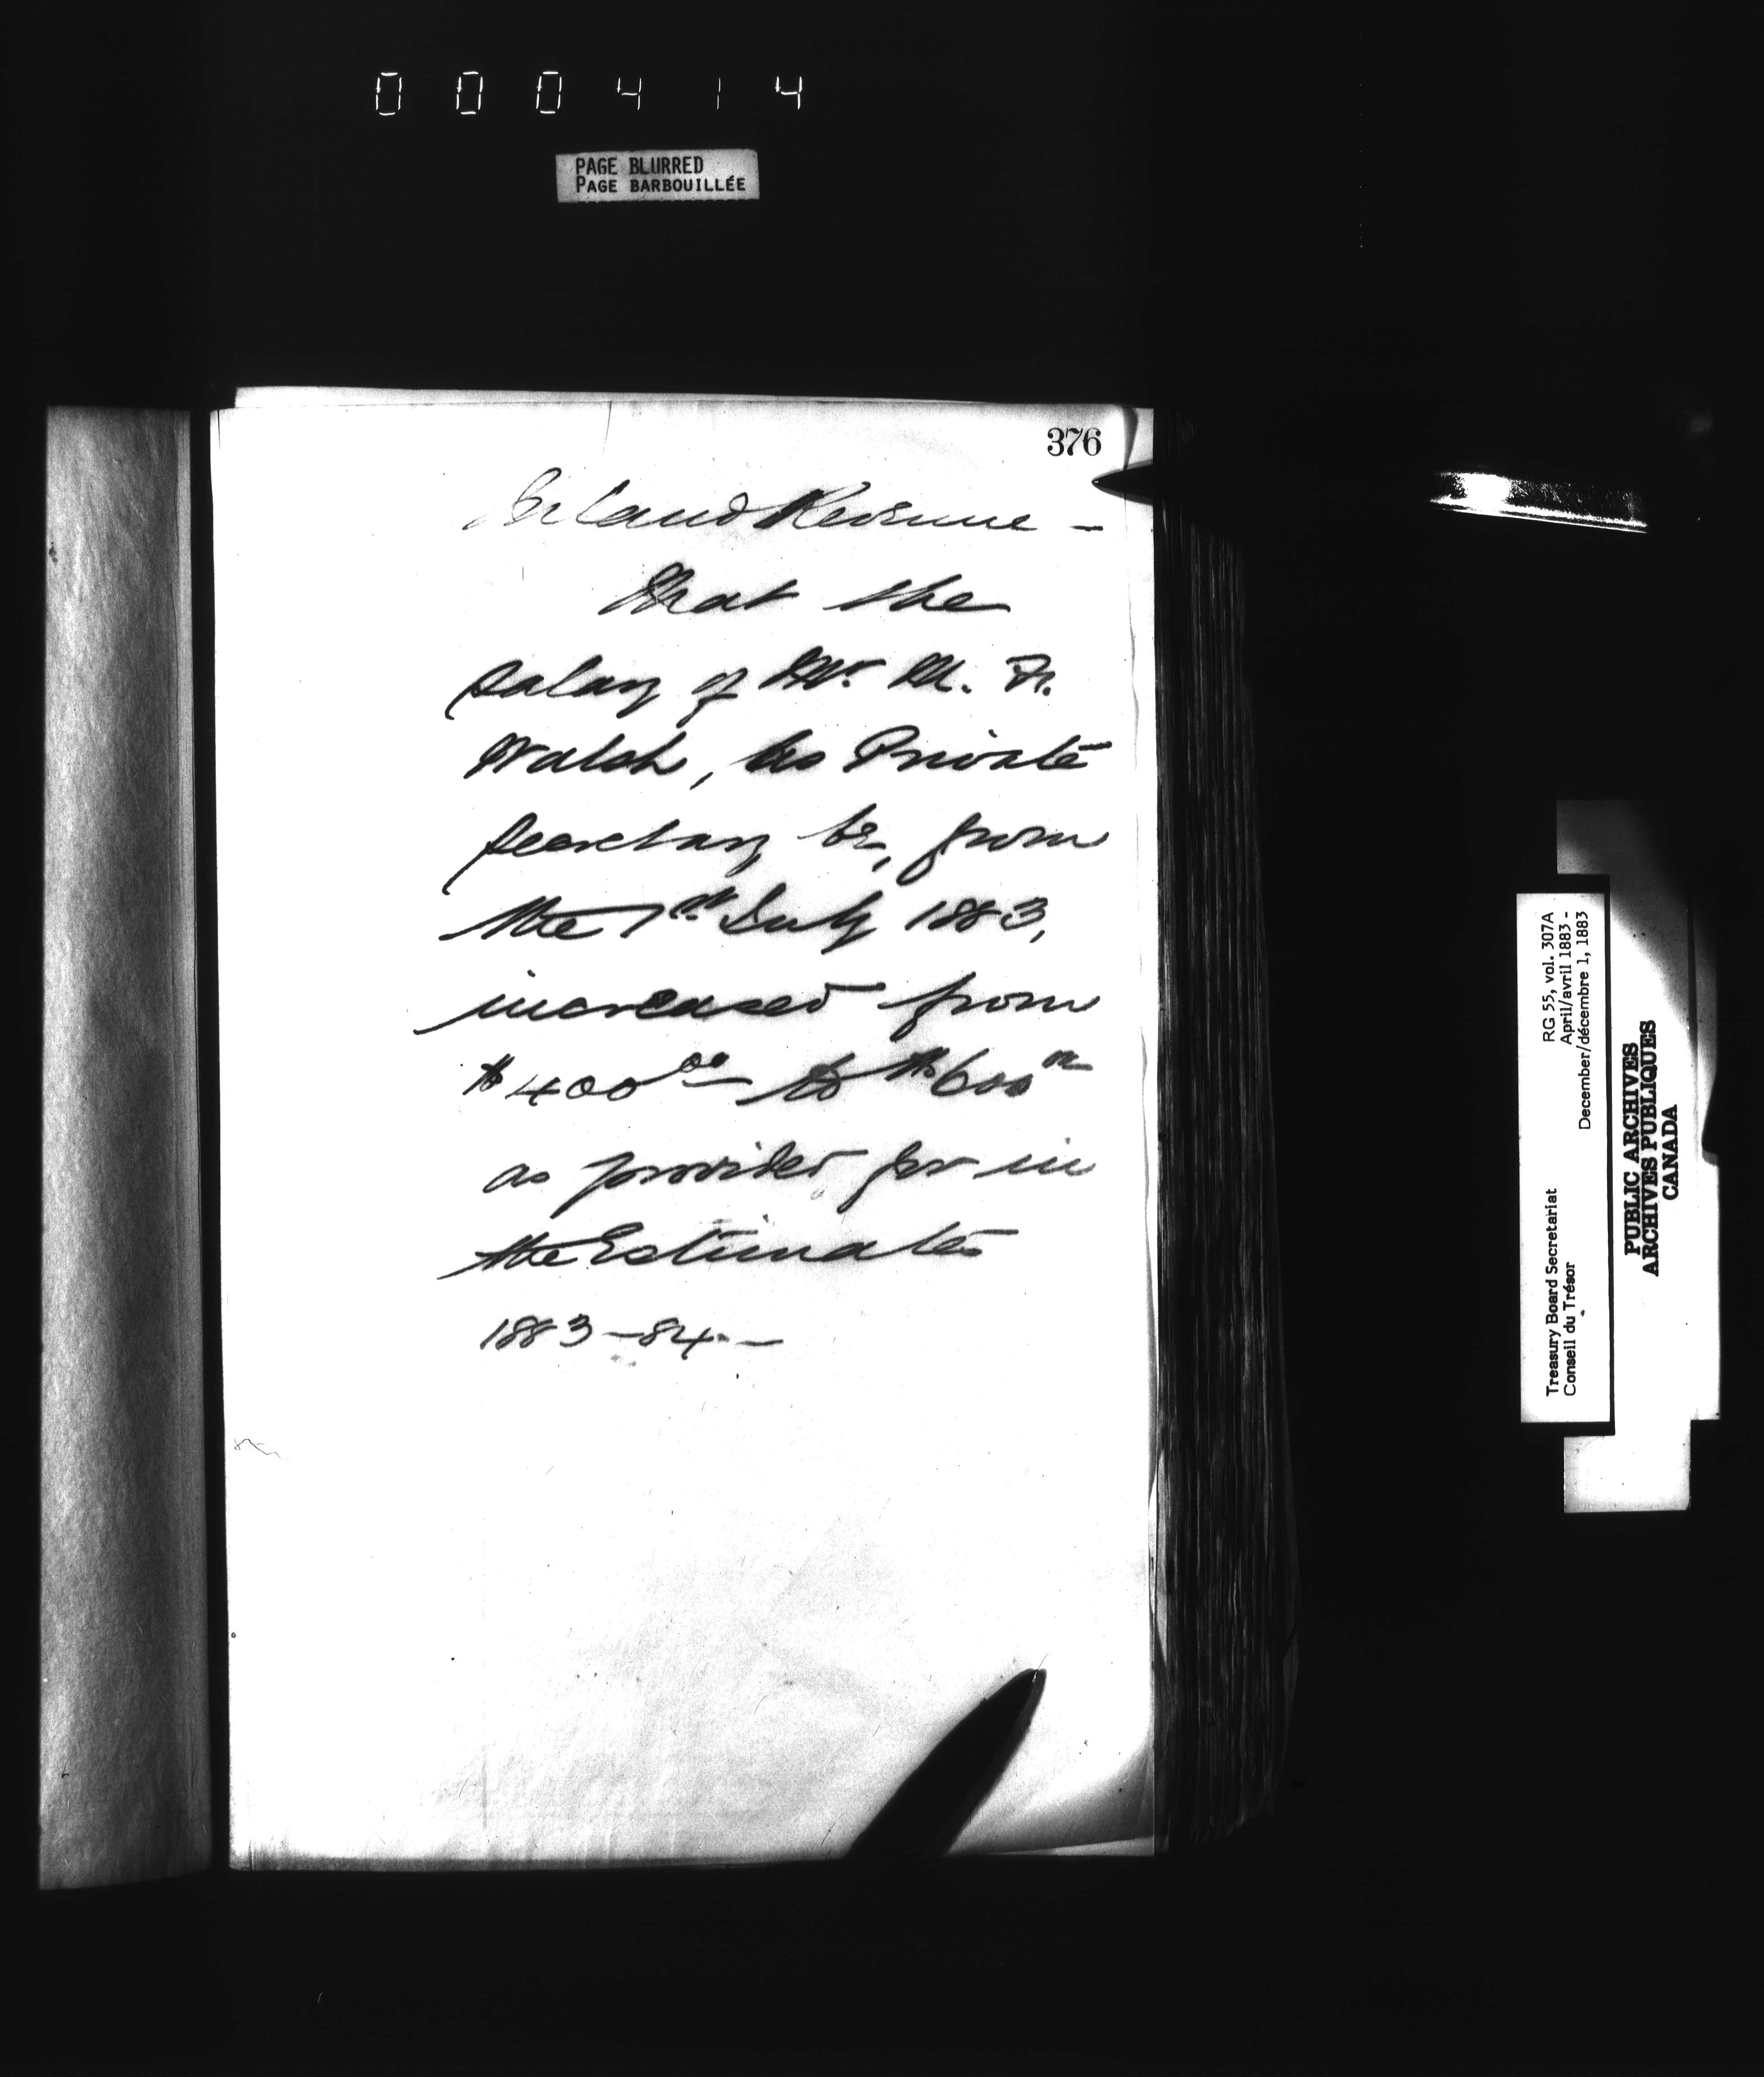 000414
PAGE BLURRED
PAGE BARBOUILLÉE
376
Inland Revenue -
That the
salary of Mr. M. F.
Walsh, as Private
Secretary be, from
the 1st July 1883,
increased from
$400.00 to $600.00
as provided for in
the Estimates
1883-84.-
RG 55, vol. 307A
April/avril 1883 -
December/décembre 1, 1883
Treasury Board Secretariat
Conseil du Trésor
PUBLIC ARCHIVES
ARCHIVES PUBLIQUES
CANADA